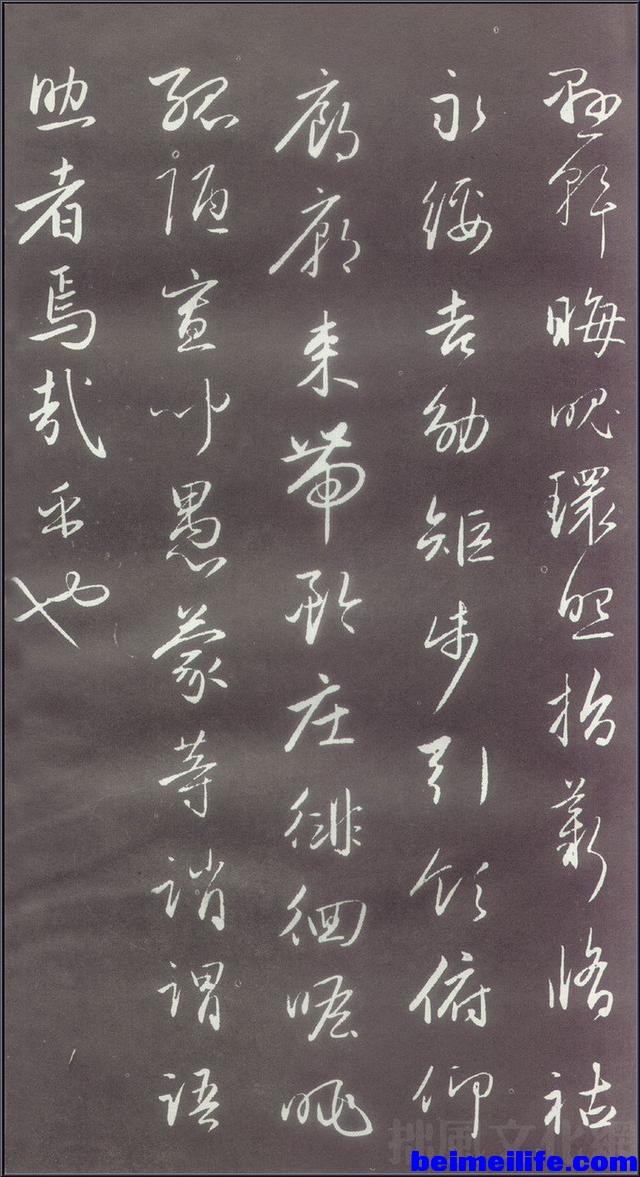 懸斡晦魄環照指薪脩祜
永綏吉劭矩步引領俯仰
廊廟束帶矜庄徘徊瞻眺
孤陋寡聞愚蒙等誚謂語
助者焉哉乎也
拙風文化網
beimeilife.com